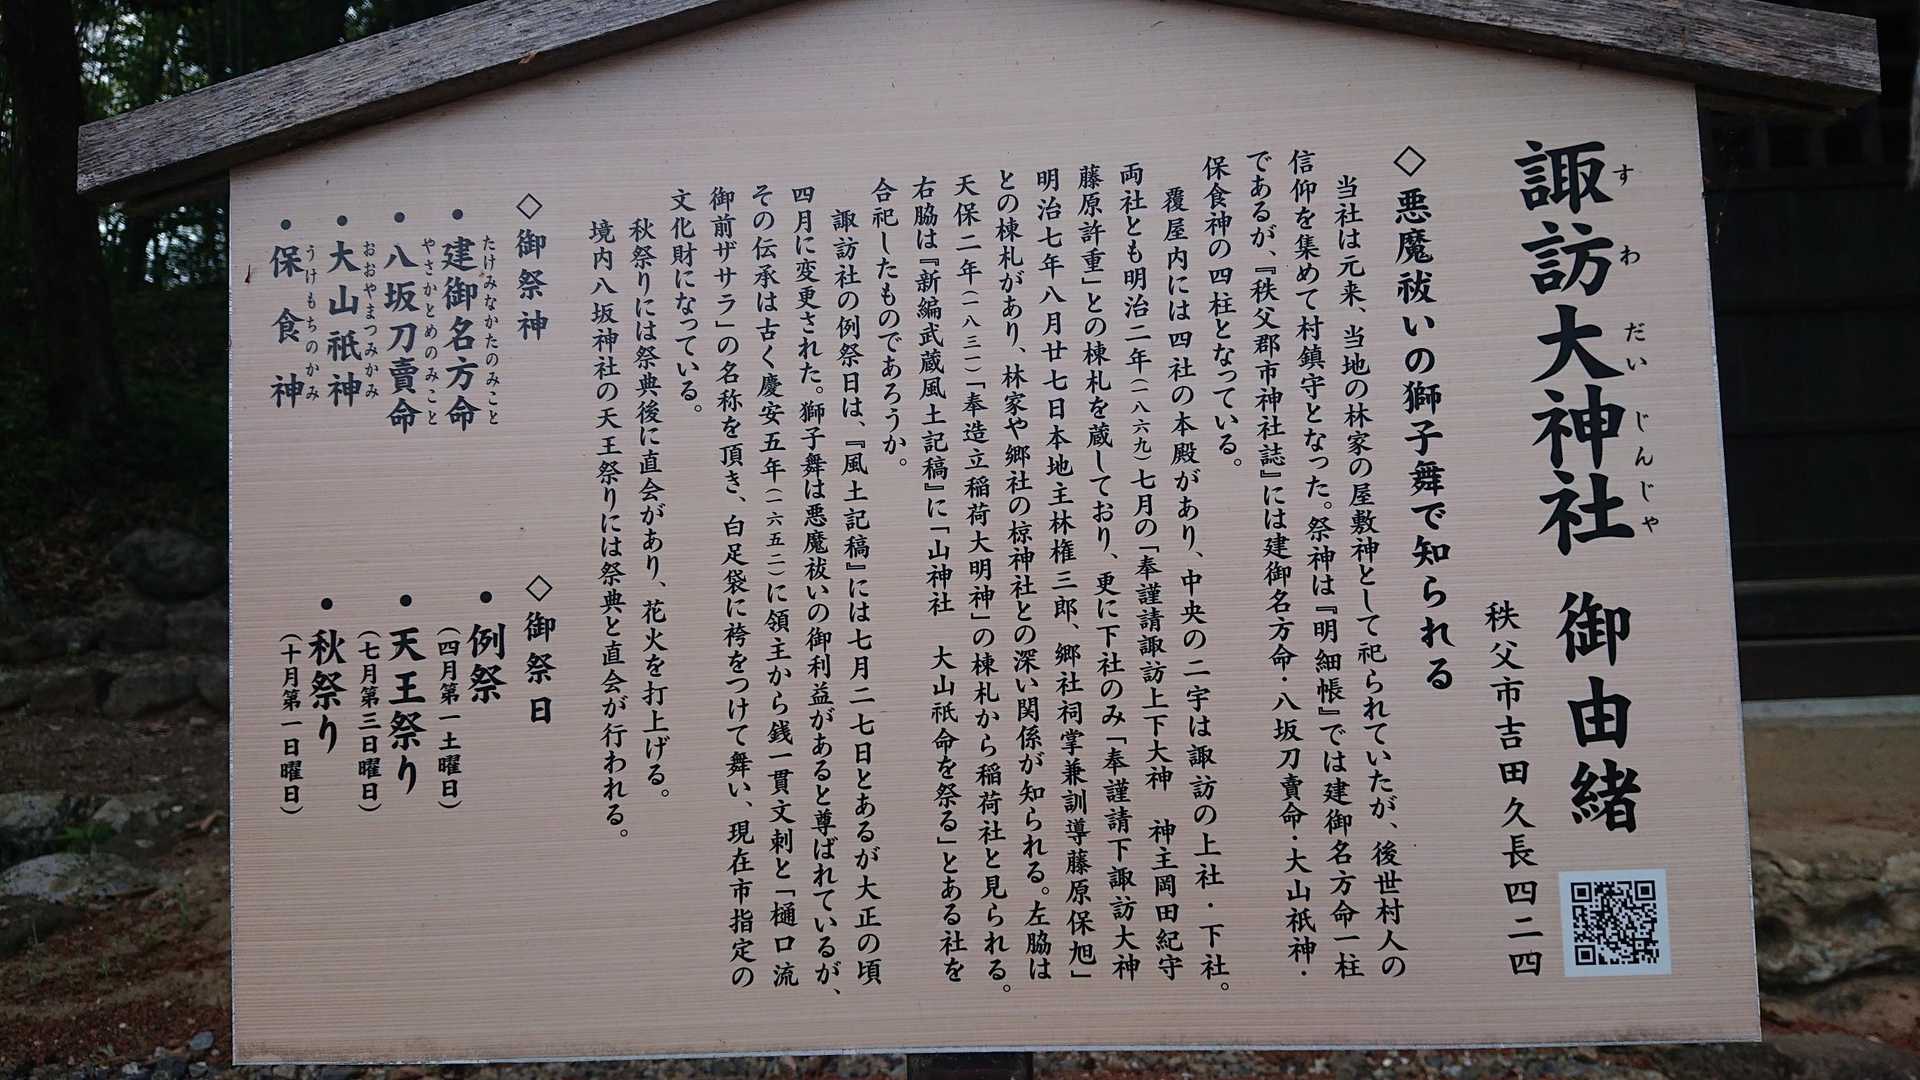 諏訪大神社 御由緒
すわだいじんじゃ
秩父市吉田久長四二四
◇悪魔祓いの獅子舞で知られる
当社は元来、当地の林家の屋敷神として祀られていたが、後世村人の
信仰を集めて村鎮守となった。祭神は『明細帳』では建御名方命一柱
であるが、『秩父郡市神社誌』には建御名方命・八坂刀賣命・大山祇神・
保食神の四柱となっている。
覆屋内には四社の本殿があり、中央の二宇は諏訪の上社・下社。
両社とも明治二年（一八六九）七月の「奉謹請諏訪上下大神 神主岡田紀守
藤原許重」との棟札を蔵しており、更に下社のみ「奉謹請下諏訪大神
明治七年八月廿七日本地主林権三郎、郷社祠掌兼訓導藤原保旭」
との棟札があり、林家や郷社の椋神社との深い関係が知られる。左脇は
天保二年（一八三一）「奉造立稲荷大明神」の棟札から稲荷社と見られる。
右脇は『新編武蔵風土記稿』に「山神社 大山祇命を祭る」とある社を
合祀したものであろうか。
諏訪社の例祭日は、『風土記稿』には七月二七日とあるが大正の頃
四月に変更された。獅子舞は悪魔祓いの御利益があると尊ばれているが、
その伝承は古く慶安五年（一六五二）に領主から銭一貫文刺と「樋口流
御前ザサラ」の名称を頂き、白足袋に袴をつけて舞い、現在市指定の
文化財になっている。
秋祭りには祭典後に直会があり、花火を打上げる。
境内八坂神社の天王祭りには祭典と直会が行われる。
◇御祭神
・建御名方命
たけみなかたのみこと
・八坂刀賣命
やさかとめのみこと
・大山祇神
おおやまつみかみ
・保食神
うけもちのかみ
◇御祭日
・例祭
（四月第一土曜日）
・天王祭り
（七月第三日曜日）
・秋祭り
（十月第一日曜日）